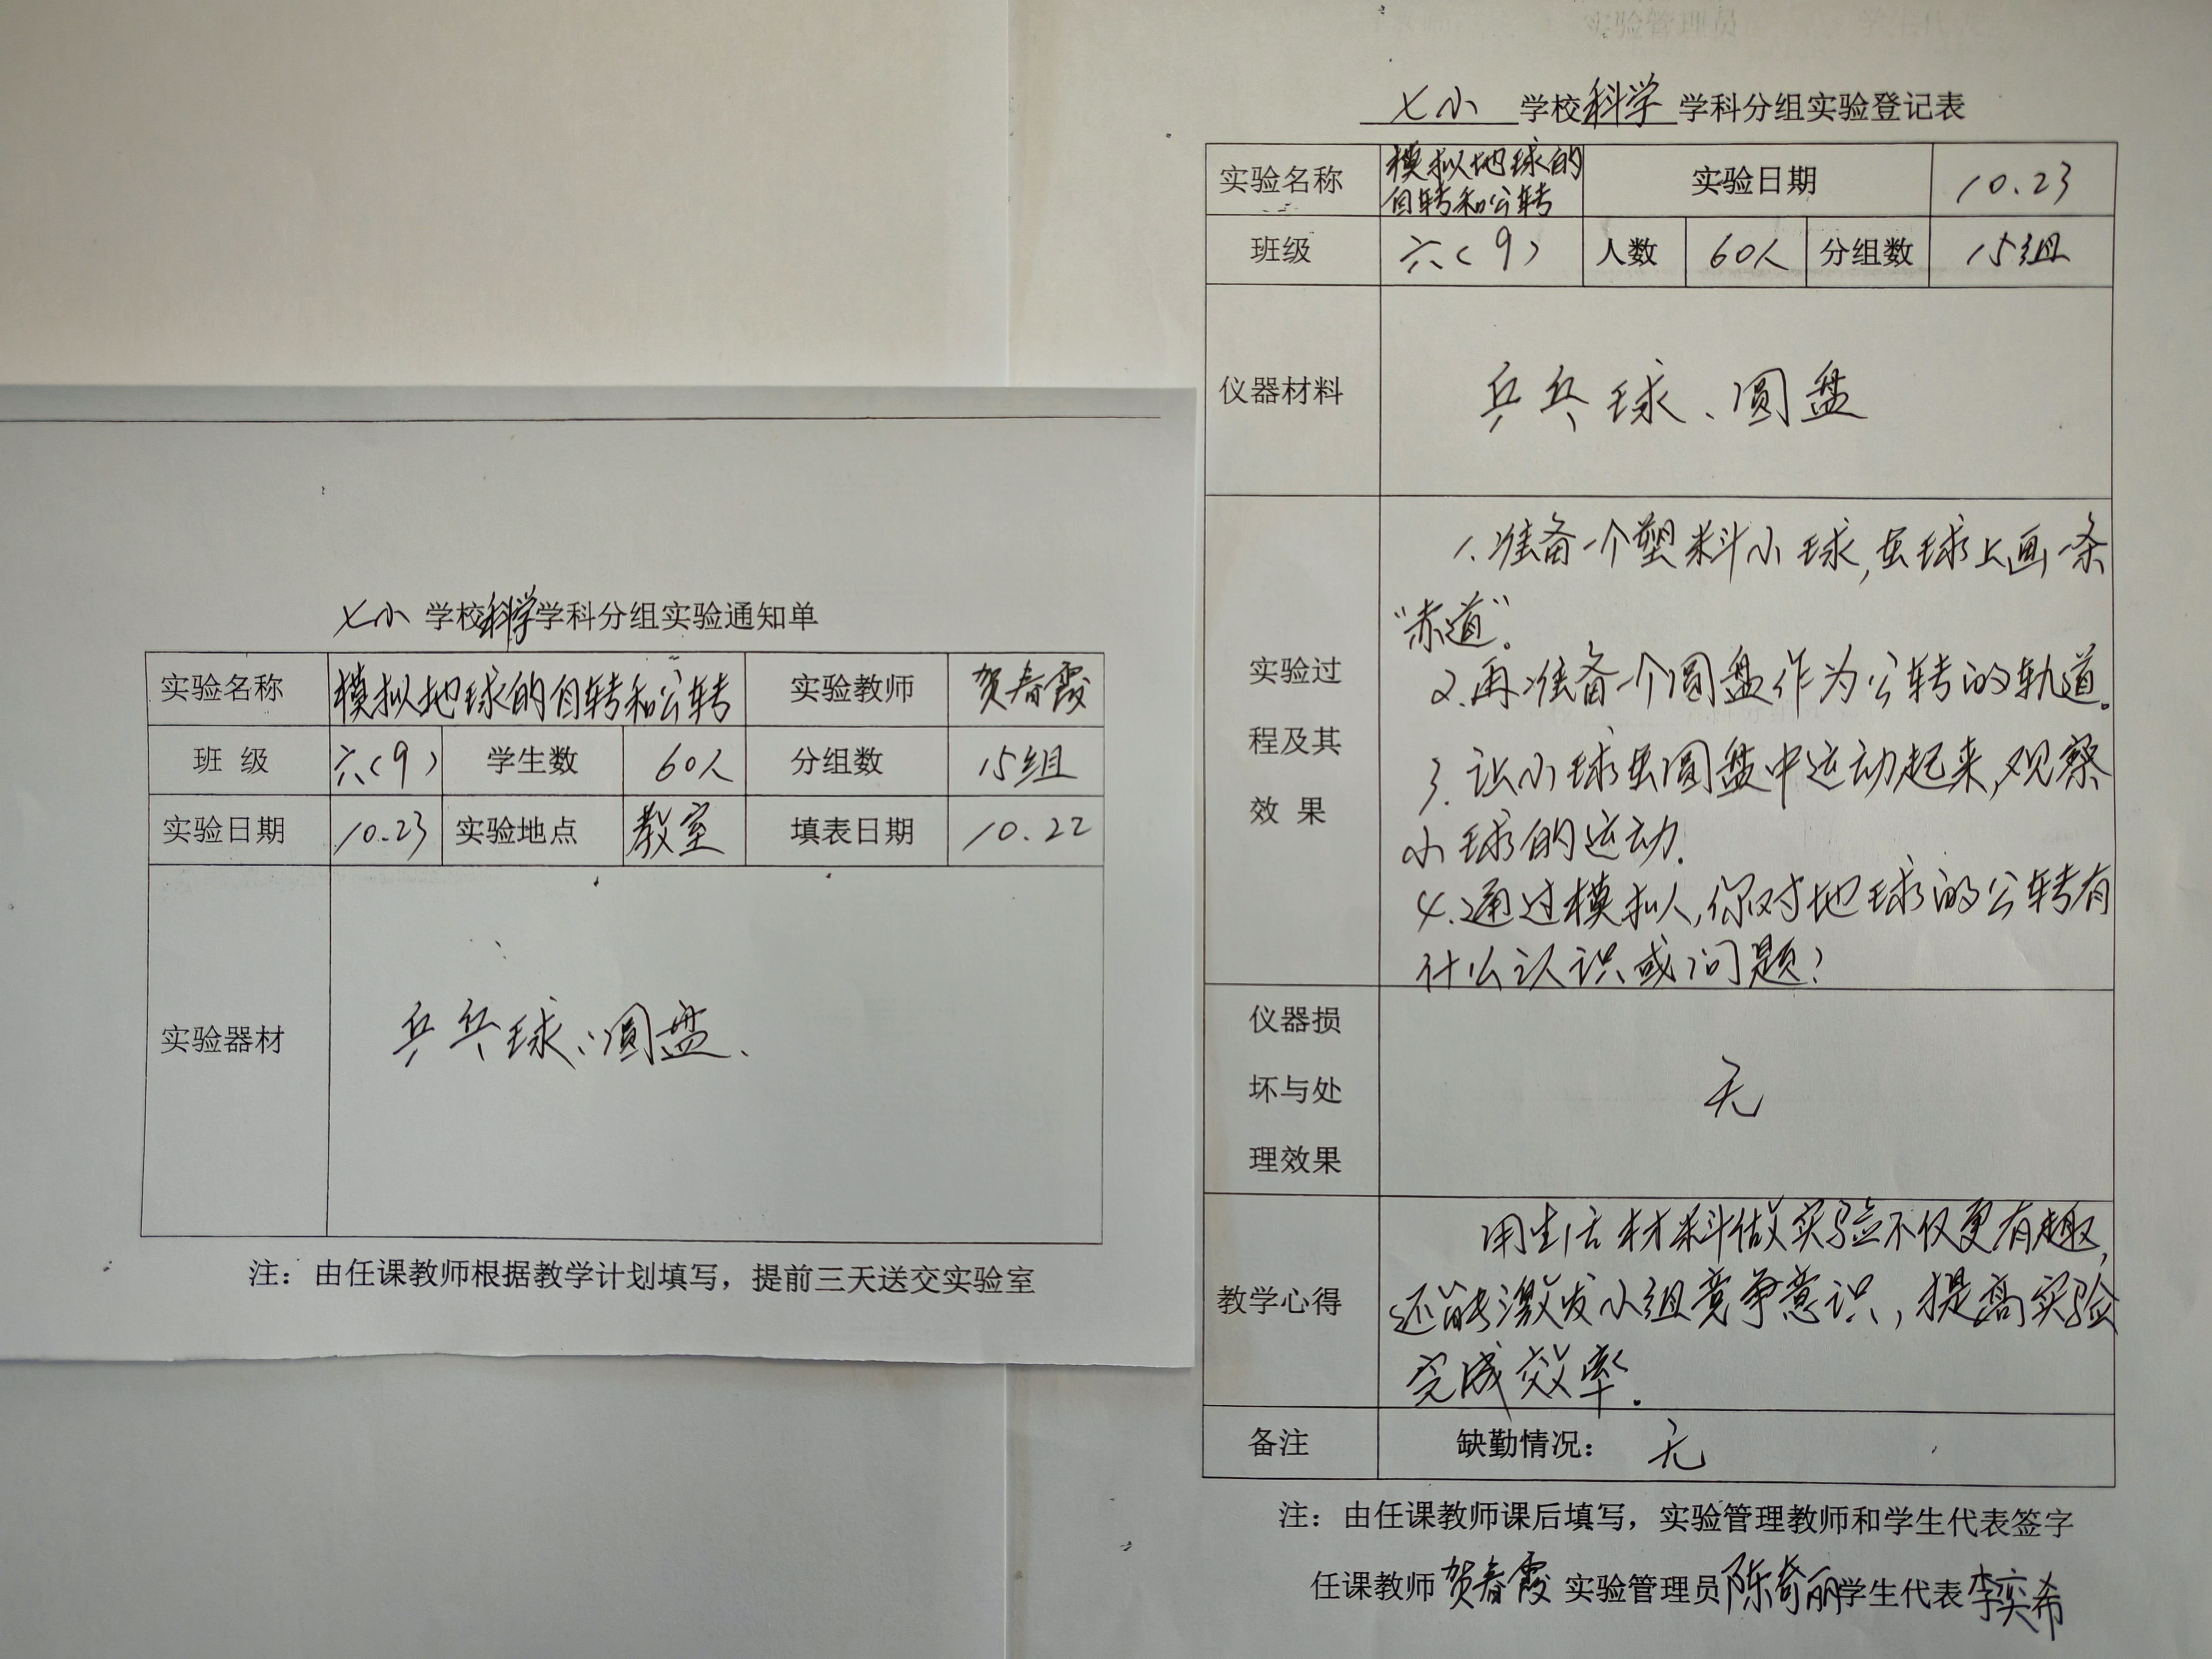 七小 学校科学学科分组实验通知单
实验名称 模拟地球的自转和公转 实验教师 贺春霞
班 级 六(9) 学生数 60人 分组数 15组
实验日期 10.23 实验地点 教室 填表日期 10.22
实验器材 乒乓球、圆盘、
注：由任课教师根据教学计划填写，提前三天送交实验室
七小 学校科学 学科分组实验登记表
实验名称 模拟地球的
自转和公转 实验日期 10.23
班级 六(9) 人数 60人 分组数 15组
仪器材料 乒乓球、圆盘
实验过
程及其
效 果
1.准备一个塑料小球,在球上画一条
“赤道”。
2.再准备一个圆盘作为公转的轨道。
3.让小球在圆盘中运动起来,观察
小球的运动.
4.通过模拟,你对地球的公转有
什么认识或问题?
仪器损
坏与处
理效果
无
教学心得
用生活材料做实验不仅更有趣,
还能激发小组竞争意识,提高实验
完成效率.
备注 缺勤情况： 无
注：由任课教师课后填写，实验管理教师和学生代表签字
任课教师 贺春霞 实验管理员 陈奇丽 学生代表 李奕希